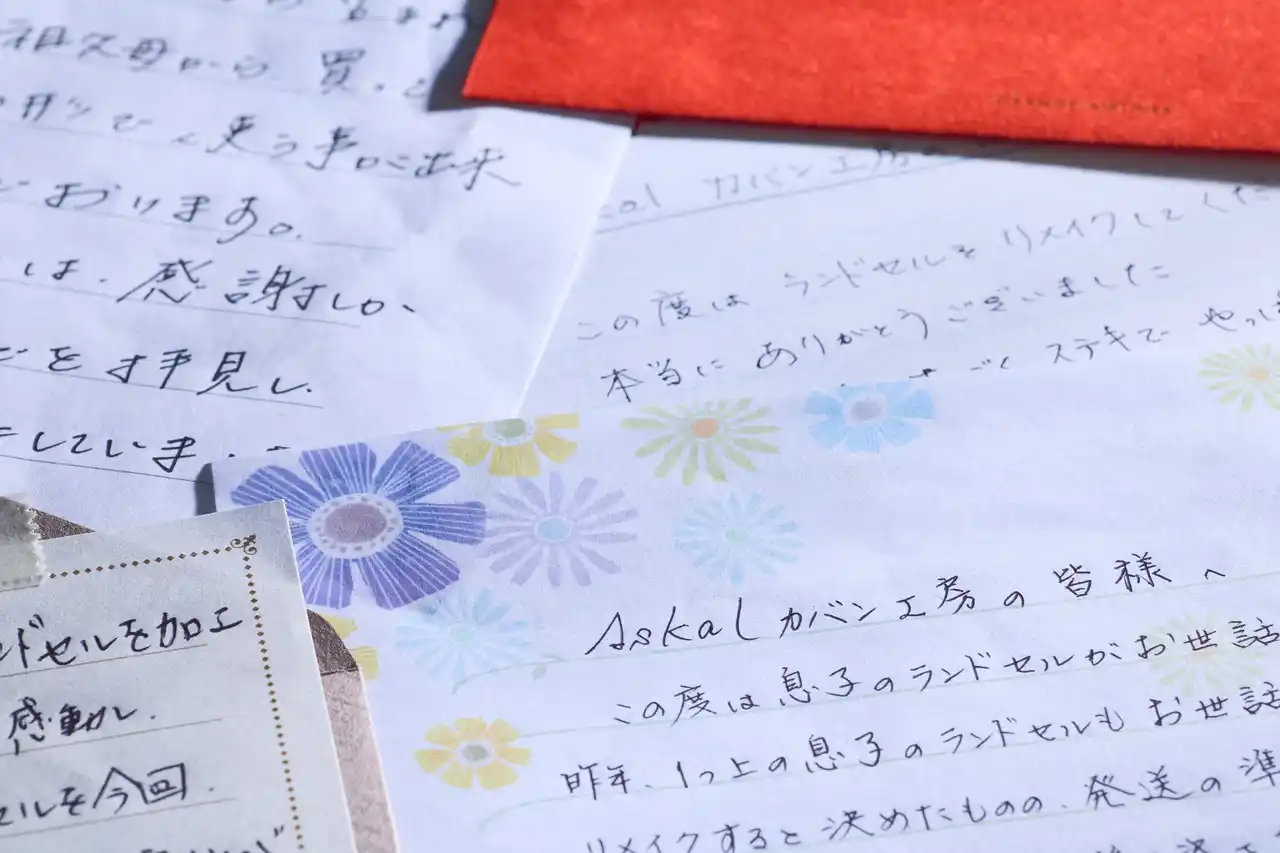 祖父母から買
使う事が出来
おります。
は、感謝し、
をお手見し、
していま
カバン工房
この度は ランドセルを リメイクしてくだ
本当に ありがとうございました
ステキで やっぱ
Askal カバン工房の 皆様へ
この度は 息子のランドセルが お世話
昨年、1つ上の息子のランドセルも お世話
リメイクすると決めたものの、発送の準
ンドセルを加工
感動し、
セルを今回、